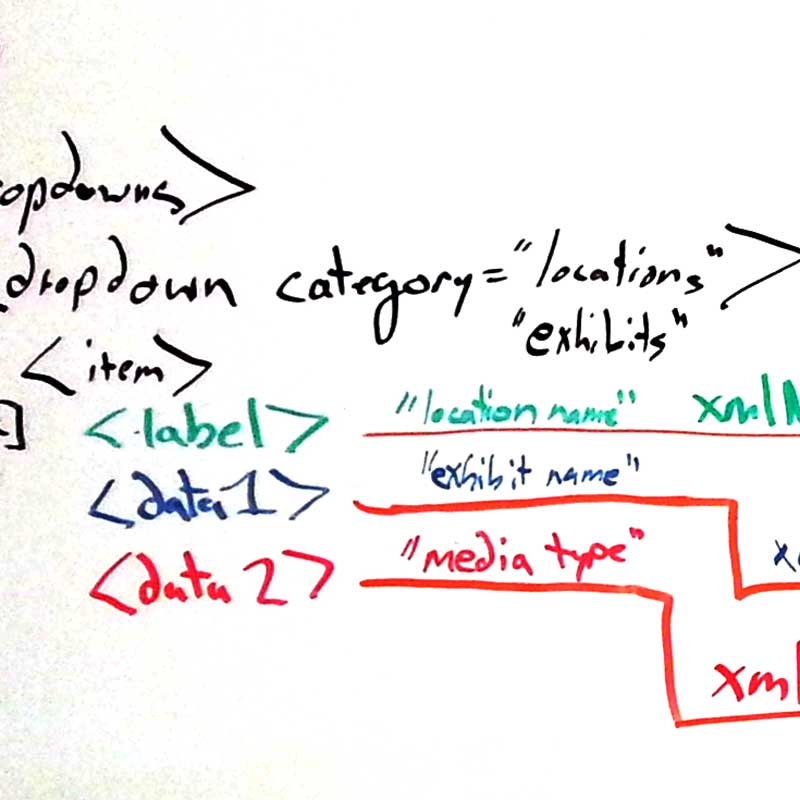 opdowns>
dropdown category="locations">
"exhibits"
<item>
] <label> "location name" xmlN
<data1> "exhibit name"
<data2> "media type"
xml